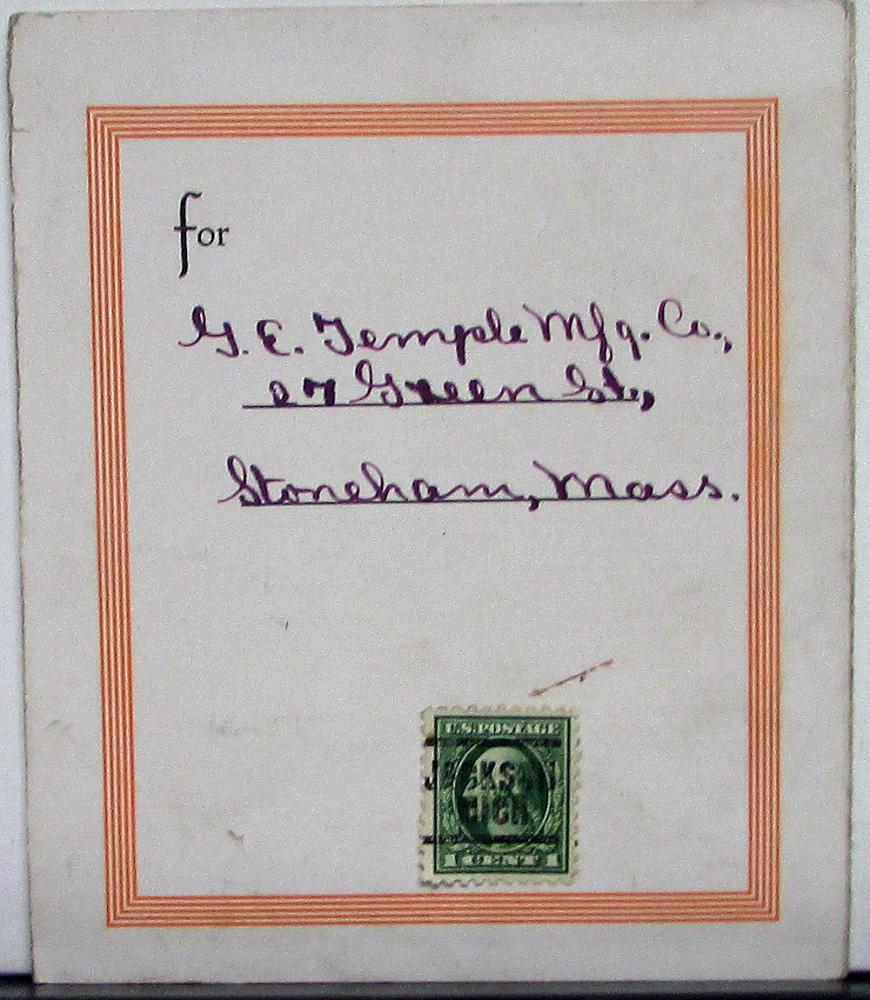 for
G. E. Temple Mfg. Co.,
27 Green St.,
Stoneham, Mass.
U.S. POSTAGE
JACKSON
MICH.
1 CENT 1